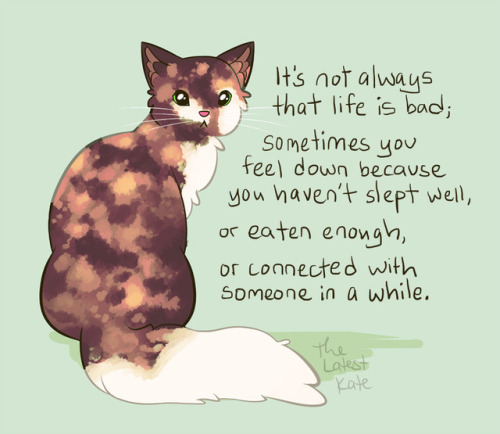 It's not always
that life is bad;
sometimes you
feel down because
you haven't slept well,
or eaten enough,
or connected with
someone in a while.
the
Latest
Kate